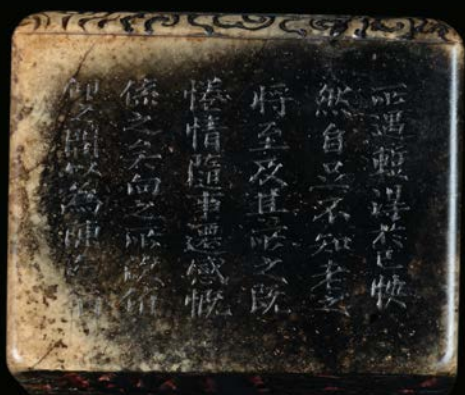 所遇暫得於己快
然自足不知老之
將至及其所之既
惓情隨事遷感慨
係之矣向之所欣
仰之間以為陳